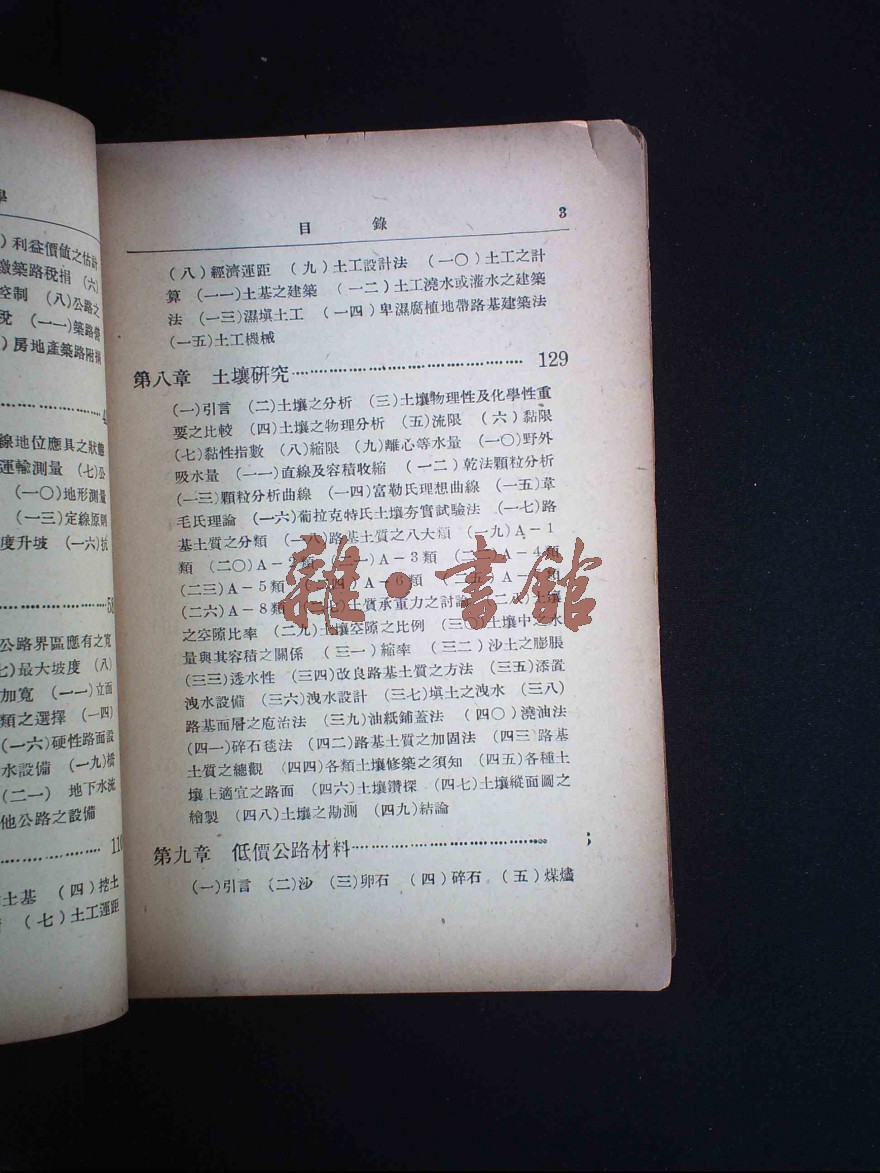 學
)利益價值之估計
繳築路稅捐 (六)
控制 (八)公路之
稅 (一一)築路營
)房地產築路附捐
4
線地位應具之狀態
運輸測量 (七)公
(一〇)地形測量
(一三)定線原則
度升坡 (一六)抗
58
公路界區應有之寬
七)最大坡度 (八)
加寬 (一一)立面
類之選擇 (一四)
(一六)硬性路面設
水設備 (一九)橋
(二一) 地下水流
他公路之設備
110
土基 (四)挖土
(七)土工運距
目 錄 3
(八)經濟運距 (九)土工設計法 (一〇)土工之計
算 (一一)土基之建築 (一二)土工澆水或灌水之建築
法 (一三)濕填土工 (一四)卑濕腐植地帶路基建築法
(一五)土工機械
第八章 土壤研究 129
(一)引言 (二)土壤之分析 (三)土壤物理性及化學性重
要之比較 (四)土壤之物理分析 (五)流限 (六)黏限
(七)黏性指數 (八)縮限 (九)離心等水量 (一〇)野外
吸水量 (一一)直線及容積收縮 (一二)乾法顆粒分析
(一三)顆粒分析曲線 (一四)富勒氏理想曲線 (一五)韋
毛氏理論 (一六)葡拉克特氏土壤夯實試驗法 (一七)路
基土質之分類 (一八)路基土質之八大類 (一九)A-1
類 (二〇)A-2類 (二一)A-3類 (二二)A-4類
(二三)A-5類 (二四)A-6類 (二五)A-7類
(二六)A-8類 (二七)土質承重力之討論 (二八)土壤
之空隙比率 (二九)土壤空隙之比例 (三〇)土壤中之水
量與其容積之關係 (三一)縮率 (三二)沙土之膨脹
(三三)透水性 (三四)改良路基土質之方法 (三五)添置
洩水設備 (三六)洩水設計 (三七)填土之洩水 (三八)
路基面層之庖治法 (三九)油紙鋪蓋法 (四〇)澆油法
(四一)碎石毯法 (四二)路基土質之加固法 (四三)路基
土質之總觀 (四四)各類土壤修築之須知 (四五)各種土
壤上適宜之路面 (四六)土壤鑽探 (四七)土壤縱面圖之
繪製 (四八)土壤之勘測 (四九)結論
第九章 低價公路材料
(一)引言 (二)沙 (三)卵石 (四)碎石 (五)煤爐
雜·書館